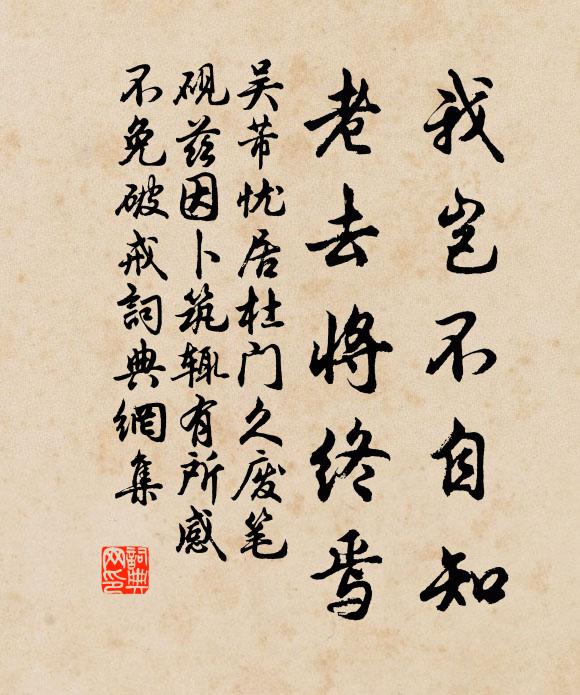 我岂不自知
老去将终焉
吴芾忧居杜门久废笔
砚兹因卜筑辄有所感
不免破戒詞典網集
詞典
网印